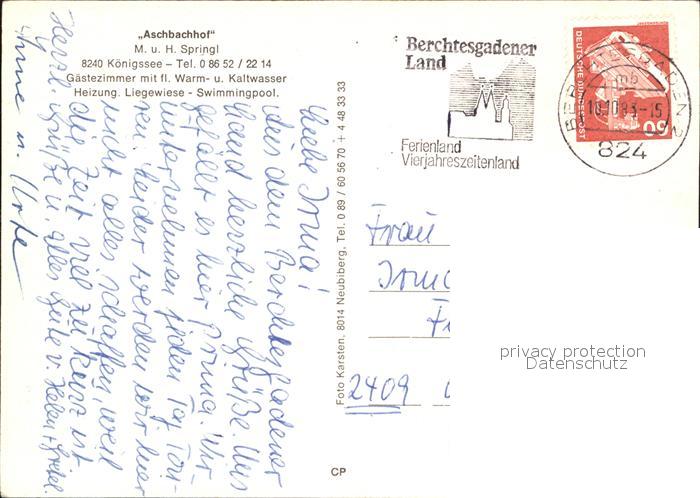 „Aschbachhof"
M. u. H. Springl
8240 Königssee – Tel. 0 86 52 / 22 14
Gästezimmer mit fl. Warm- u. Kaltwasser
Heizung. Liegewiese - Swimmingpool.
Liebe Irma!
Aus dem Berchtesgadener
Land herzliche Grüße. Uns
gefällt es hier prima. Wir
unternehmen jeden Tag Tou-
ren. Leider werden wir hier
nicht alles schaffen, weil
die Zeit viel zu kurz ist
Herzl. Grüße u. alles Gute v. Helen + Gretel.
Anne u. Urte
Foto Karsten, 8014 Neubiberg, Tel. 0 89 / 60 56 70 + 4 48 33 33
CP
Berchtesgadener
Land
Ferienland
Vierjahreszeitenland
DEUTSCHE BUNDESPOST
60
BERCHTESGADEN 2
mb
10.10.83-15
824
Frau
Irma
2409
privacy protection
Datenschutz